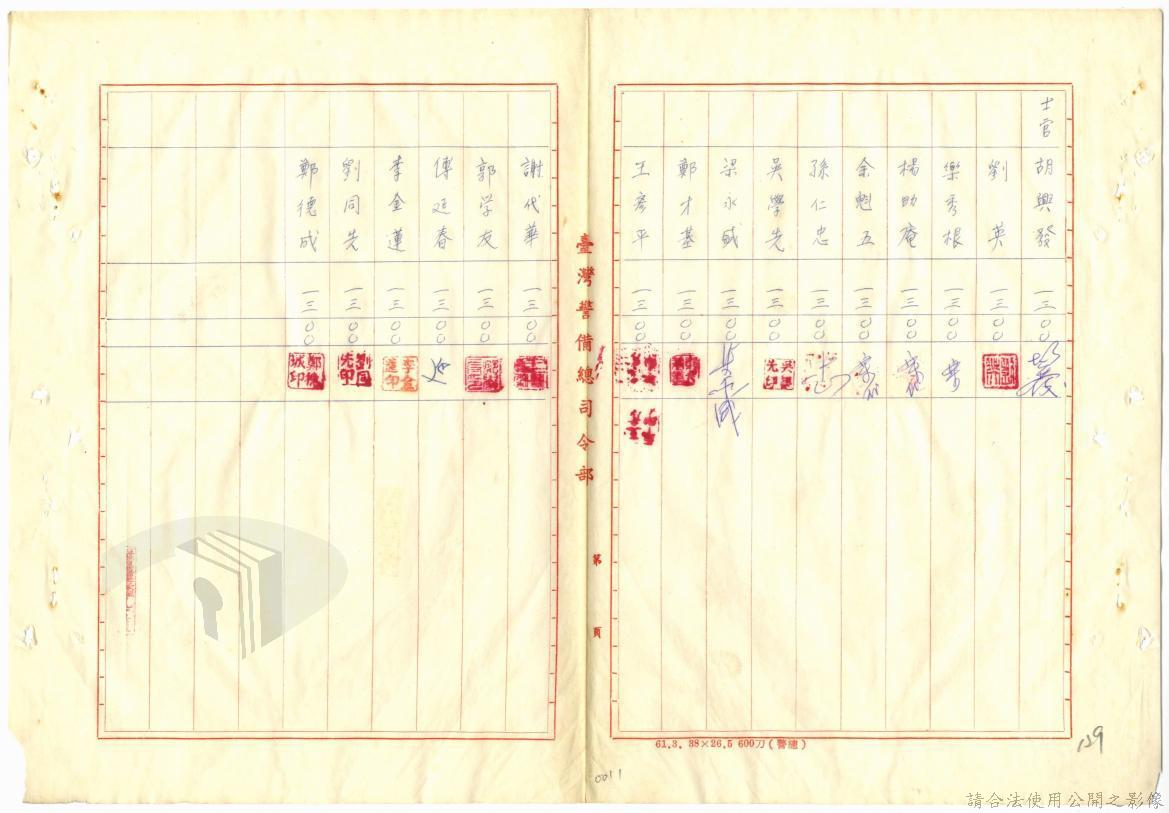 士官 胡興發 一三〇〇
劉英 一三〇〇
樂秀根 一三〇〇
楊助庵 一三〇〇
余魁五 一三〇〇
孫仁忠 一三〇〇
吳學先 一三〇〇 吳學先印
梁永盛 一三〇〇
鄭才基 一三〇〇
王彥平 一三〇〇
臺灣警備總司令部
第 頁
謝代華 一三〇〇
郭学友 一三〇〇
傅延春 一三〇〇
李金蓮 一三〇〇 李金蓮印
劉同先 一三〇〇 劉同先印
鄭德成 一三〇〇
61.3. 38×26.5 600刀(警總)
129
0011
請合法使用公開之影像